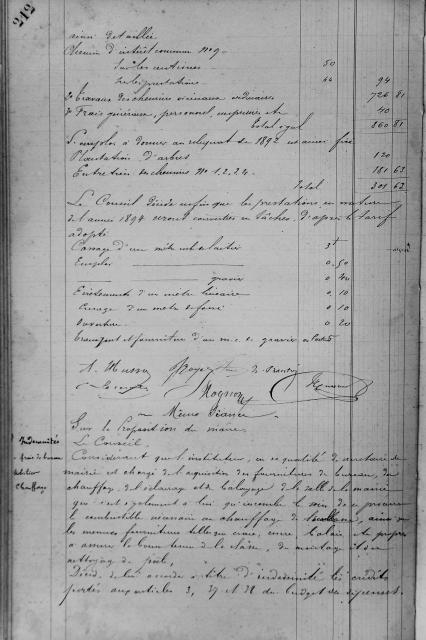 212
ainsi détaillée
Chemin d'intérêt commun No 9
Sur les centimes 50
Sur les prestations 44 94
do Travaux des chemins vicinaux ordinaires 726 81
do Frais généraux, personnel, imprimés etc 40
Total égal 860 81
L'emploi à donner au reliquat de 1892 est ainsi fixé
Plantation d'arbres 120
Entretien des chemins No 1. 2. 2 4. 181 63
Total 301 63
Le Conseil décide enfin que les prestations en nature
de l'année 1894 seront converties en tâches d'après le tarif
adopté
Cassage d'un mètre cube
Emploi 0. 50
gravier
d'un mètre linéaire 0. 10
Curage d'un mètre de fossé 0 10
Ouverture 0 20
Transport et fourniture d'un m. c. de gravier
A. Husson
Mognon
Même Séance
Indemnités
Chauffage
Sur la proposition du maire,
Le Conseil,
Considérant que l'instituteur, en sa qualité de secrétaire de
mairie est chargé de l'acquisition des fournitures de bureau, du
chauffage, de l'éclairage et du balayage de la salle de la mairie
que c'est également à lui qu'incombe le soin de se procurer
le combustible nécessaire au chauffage de
les menues fournitures telles que craie, encre balais etc propres
à assurer la bonne tenue de la classe, du
nettoyage du poêle,
Décide de lui accorder à titre d'indemnité les crédits
portés aux articles 3, 37 et 38 du budget des dépenses.